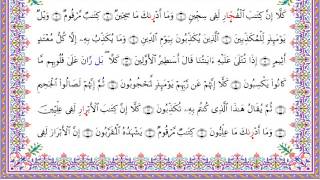 كَلَّآ إِنَّ كِتَٰبَ ٱلْفُجَّارِ لَفِى سِجِّينٍ ۝ وَمَآ أَدْرَىٰكَ مَا سِجِّينٌ ۝ كِتَٰبٌ مَّرْقُومٌ ۝ وَيْلٌ
يَوْمَئِذٍ لِّلْمُكَذِّبِينَ ۝ ٱلَّذِينَ يُكَذِّبُونَ بِيَوْمِ ٱلدِّينِ ۝ وَمَا يُكَذِّبُ بِهِۦٓ إِلَّا كُلُّ مُعْتَدٍ
أَثِيمٍ ۝ إِذَا تُتْلَىٰ عَلَيْهِ ءَايَٰتُنَا قَالَ أَسَٰطِيرُ ٱلْأَوَّلِينَ ۝ كَلَّا ۖ بَلْ ۜ رَانَ عَلَىٰ قُلُوبِهِم مَّا
كَانُوا۟ يَكْسِبُونَ ۝ كَلَّآ إِنَّهُمْ عَن رَّبِّهِمْ يَوْمَئِذٍ لَّمَحْجُوبُونَ ۝ ثُمَّ إِنَّهُمْ لَصَالُوا۟ ٱلْجَحِيمِ
۝ ثُمَّ يُقَالُ هَٰذَا ٱلَّذِى كُنتُم بِهِۦ تُكَذِّبُونَ ۝ كَلَّآ إِنَّ كِتَٰبَ ٱلْأَبْرَارِ لَفِى عِلِّيِّينَ
۝ وَمَآ أَدْرَىٰكَ مَا عِلِّيُّونَ ۝ كِتَٰبٌ مَّرْقُومٌ ۝ يَشْهَدُهُ ٱلْمُقَرَّبُونَ ۝ إِنَّ ٱلْأَبْرَارَ لَفِى